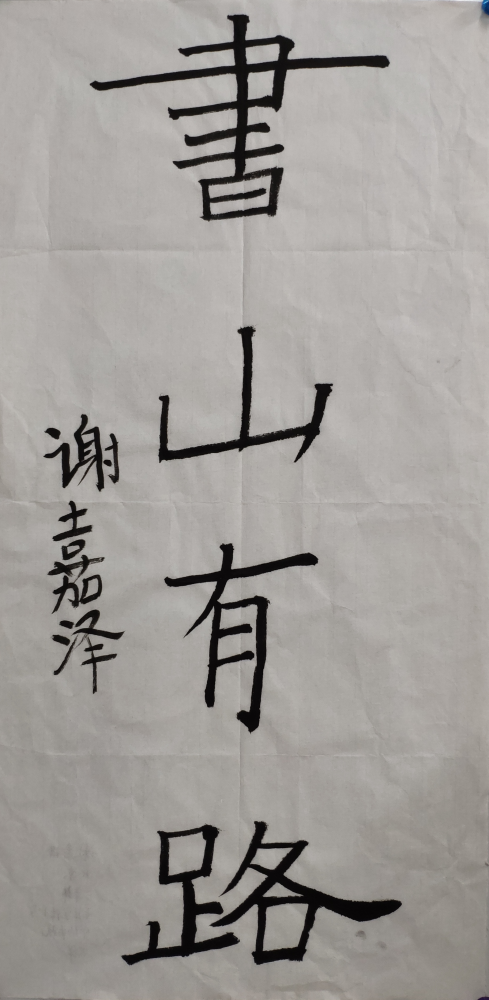 書山有路
谢嘉泽